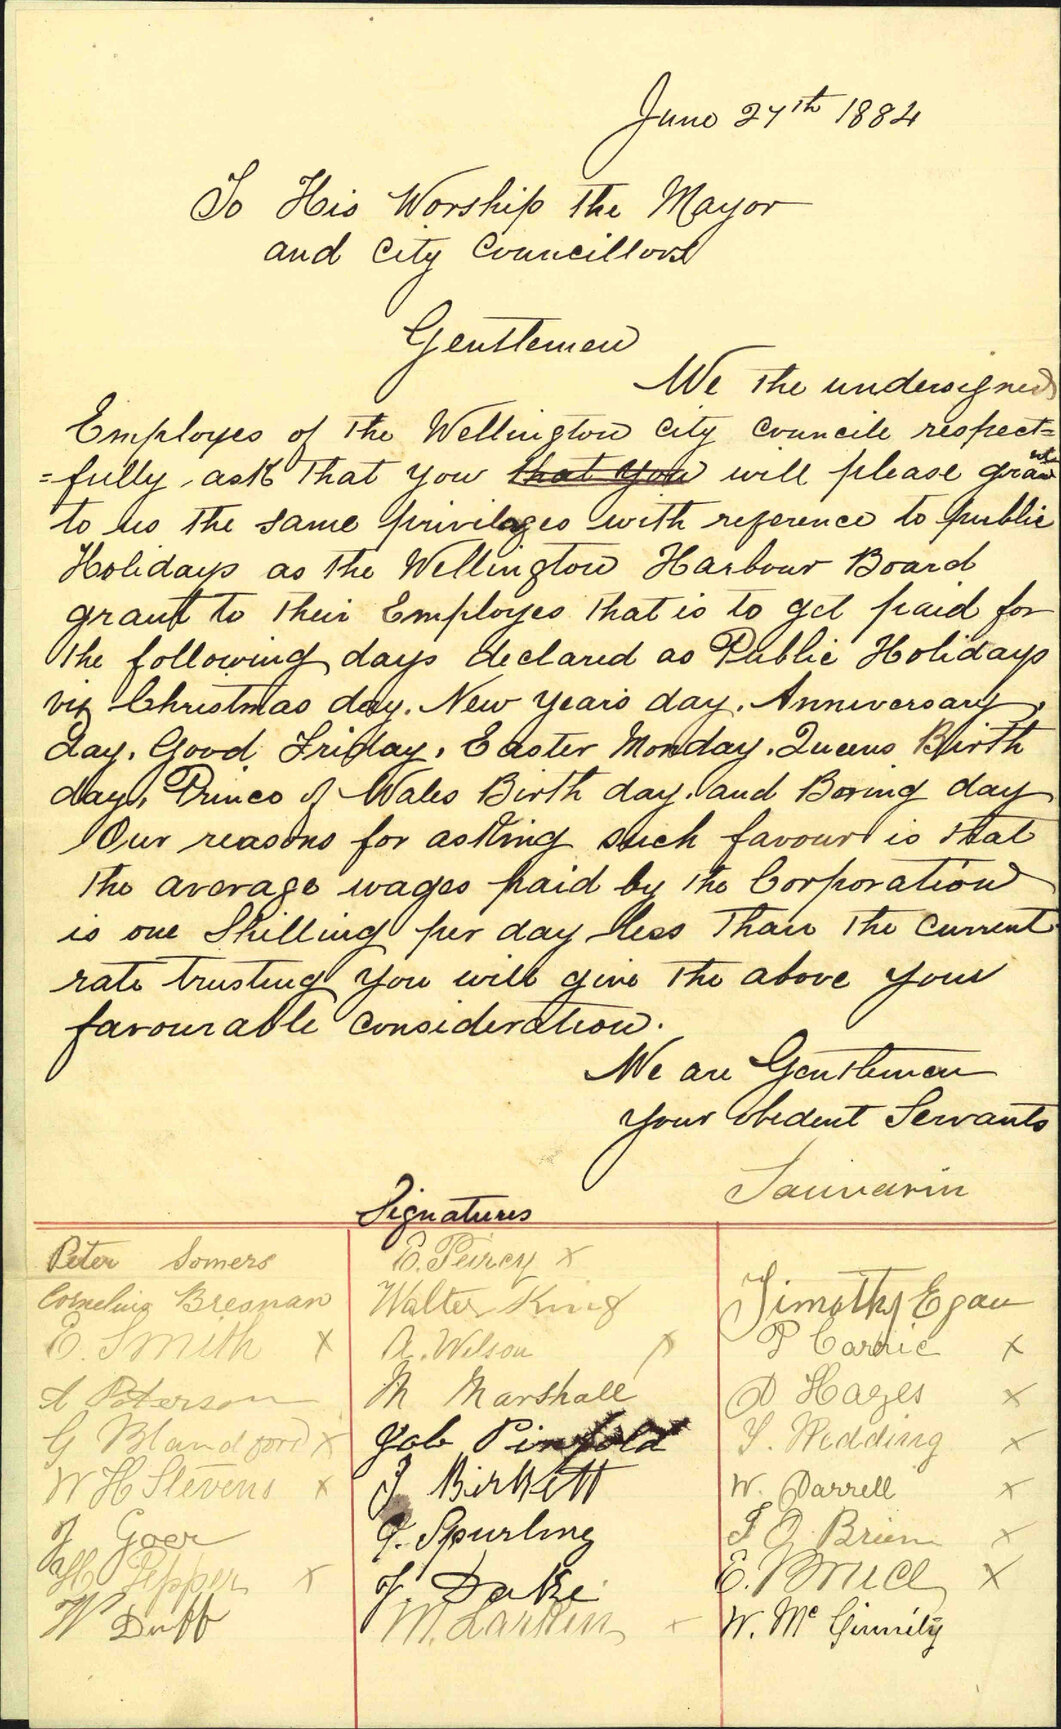 June 27th 1884
To His Worship the Mayor
and City Councillors
Gentlemen
We the undersigned
Employes of the Wellington City Councile respect=
=fully ask that you that you will please grant
to us the same privileges with reference to public
Holidays as the Wellington Harbour Board
grant to their Employes that is to get paid for
the following days declared as Public Holidays
viz Christmas day. New years day. Anniversary
day. Good Friday. Easter Monday. Queens Birth
day. Prince of Wales Birth day. and Boxing day
Our reasons for asking such favour is that
the average wages paid by the Corporation
is one Shilling per day less than the current
rate trusting you will give the above your
favourable consideration.
We are Gentlemen
your obedent Servants
Signatures
Peter Somers
Cornelius Bresnan
E. Smith x
A Peterson
G Blandford x
W H Stevens x
J Goer
H Pepper x
W Duff
E. Peircy x
Walter King
A. Wilson x
M Marshall
Job Pinfold
J Birkett
G. Spurling
J. Dake
M. Larkin x
Sauvarin
Timothy Egan
P Carric x
D Hayes x
S. Redding x
W. Darrell x
T O Brien x
E. Bruce x
W. Mc Ginnity